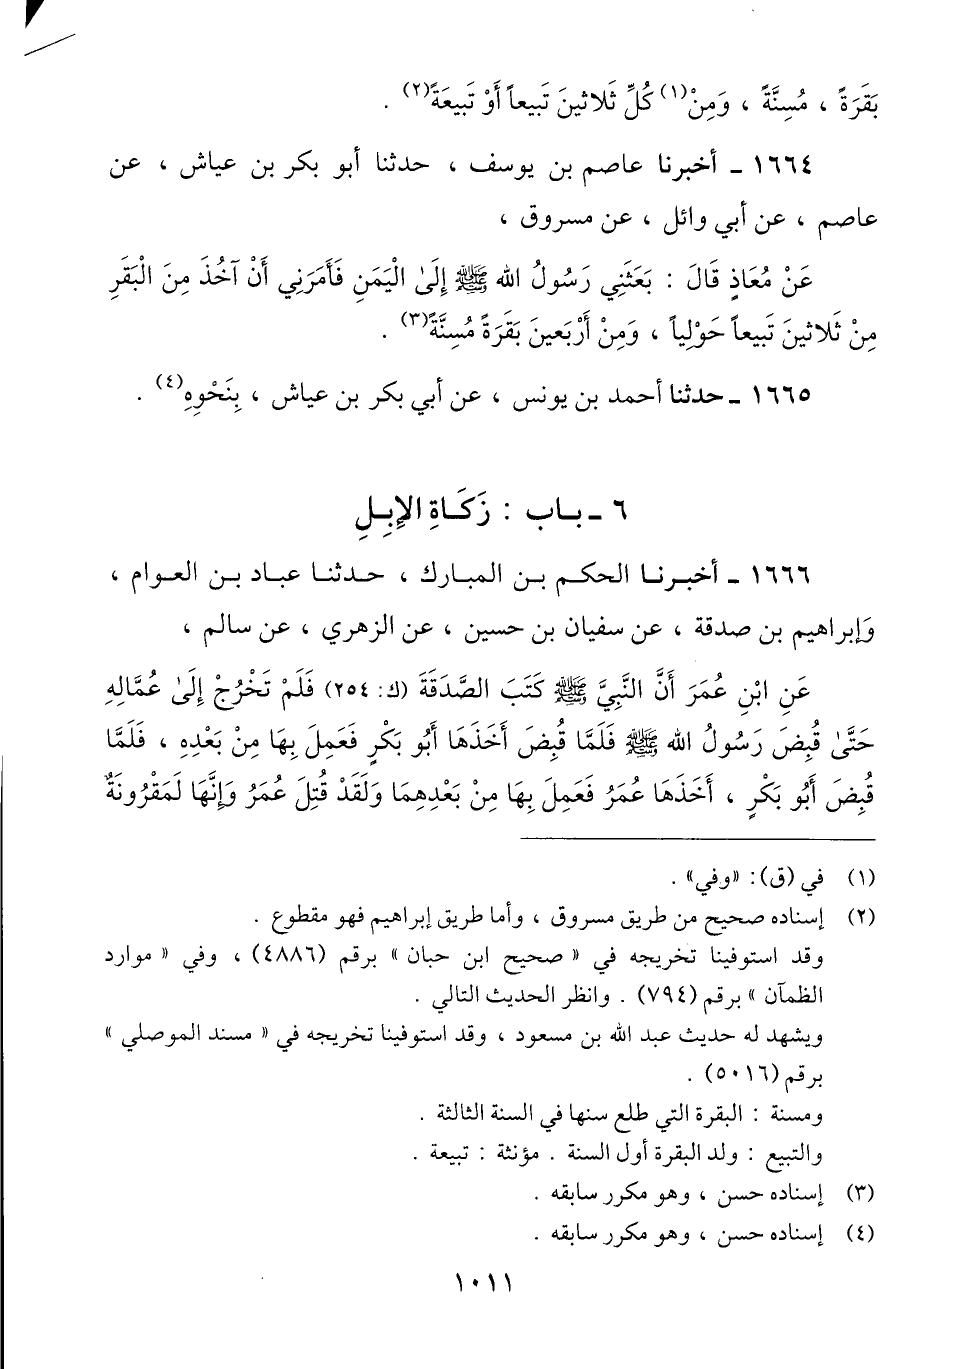 بَقَرَةً ، مُسِنَّةً ، وَمِنْ(١) كُلِّ ثَلاثينَ تَبيعاً أَوْ تَبيعَةً(٢) .
١٦٦٤ ـ أخبرنا عاصم بن يوسف ، حدثنا أبو بكر بن عياش ، عن
عاصم ، عن أبي وائل ، عن مسروق ،
عَنْ مُعَاذٍ قَالَ : بَعَثَنِي رَسُولُ الله ﷺ إِلَىٰ الْيَمَنِ فَأَمَرَنِي أَنْ آخُذَ مِنَ الْبَقَرِ
مِنْ ثَلاثينَ تَبيعاً حَوْلِياً ، وَمِنْ أَرْبَعينَ بَقَرَةً مُسِنَّةً(٣) .
١٦٦٥ ـ حدثنا أحمد بن يونس ، عن أبي بكر بن عياش ، بِنَحْوِهِ(٤) .
٦ ـ بـاب : زَكَـاةِ الإِبِـلِ
١٦٦٦ ـ أخبـرنـا الحكـم بـن المبـارك ، حـدثنـا عبـاد بـن العـوام ،
وَإبراهيم بن صدقة ، عن سفيان بن حسين ، عن الزهري ، عن سالم ،
عَنِ ابْنِ عُمَرَ أَنَّ النَّبِيَّ ﷺ كَتَبَ الصَّدَقَةَ (ك: ٢٥٤) فَلَمْ تَخْرُجْ إِلَىٰ عُمَّالِهِ
حَتَّىٰ قُبِضَ رَسُولُ الله ﷺ فَلَمَّا قُبِضَ أَخَذَهَا أَبُو بَكْرٍ فَعَمِلَ بِهَا مِنْ بَعْدِهِ ، فَلَمَّا
قُبِضَ أَبُو بَكْرٍ ، أَخَذَهَا عُمَرُ فَعَمِلَ بِهَا مِنْ بَعْدِهِمَا وَلَقَدْ قُتِلَ عُمَرُ وَإِنَّهَا لَمَقْرُونَةٌ
(١) في (ق): «وفي» .
(٢) إسناده صحيح من طريق مسروق ، وأما طريق إبراهيم فهو مقطوع .
وقد استوفينا تخريجه في « صحيح ابن حبان » برقم (٤٨٨٦) ، وفي « موارد
الظمآن » برقم (٧٩٤) . وانظر الحديث التالي .
ويشهد له حديث عبد الله بن مسعود ، وقد استوفينا تخريجه في « مسند الموصلي »
برقم (٥٠١٦) .
ومسنة : البقرة التي طلع سنها في السنة الثالثة .
والتبيع : ولد البقرة أول السنة . مؤنثة : تبيعة .
(٣) إسناده حسن ، وهو مكرر سابقه .
(٤) إسناده حسن ، وهو مكرر سابقه .
١٠١١